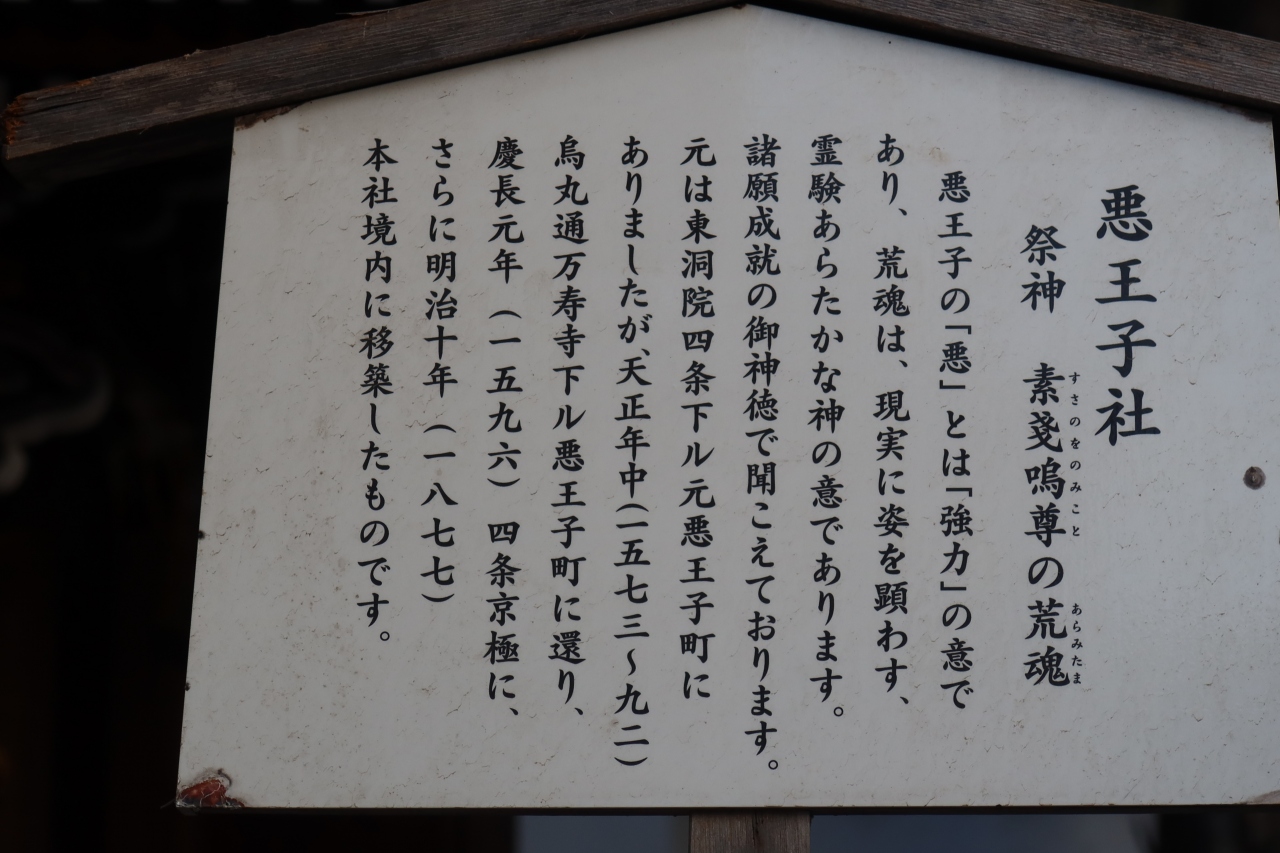 悪王子社
祭神 素戔嗚尊の荒魂
すさのをのみこと
あらみたま
悪王子の「悪」とは「強力」の意で
あり、荒魂は、現実に姿を顕わす、
霊験あらたかな神の意であります。
諸願成就の御神徳で聞こえております。
元は東洞院四条下ル元悪王子町に
ありましたが、天正年中(一五七三～九二)
烏丸通万寿寺下ル悪王子町に還り、
慶長元年(一五九六)四条京極に、
さらに明治十年(一八七七)
本社境内に移築したものです。